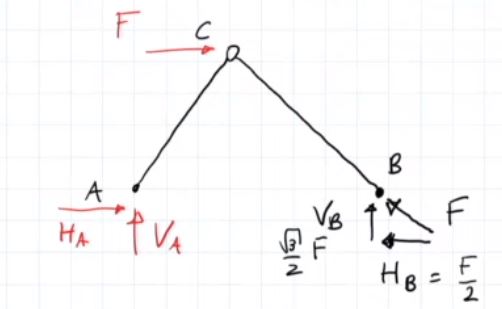 F
C
A
B
H_A
V_A
V_B
√3/2 F
F
H_B = F/2